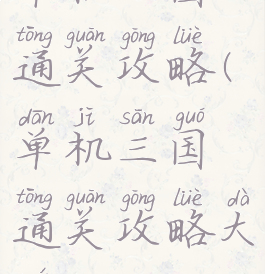 tōng guān gōng lüè
通关攻略(
dān jī sān guó
单机三国
tōng guān gōng lüè dà
通关攻略大